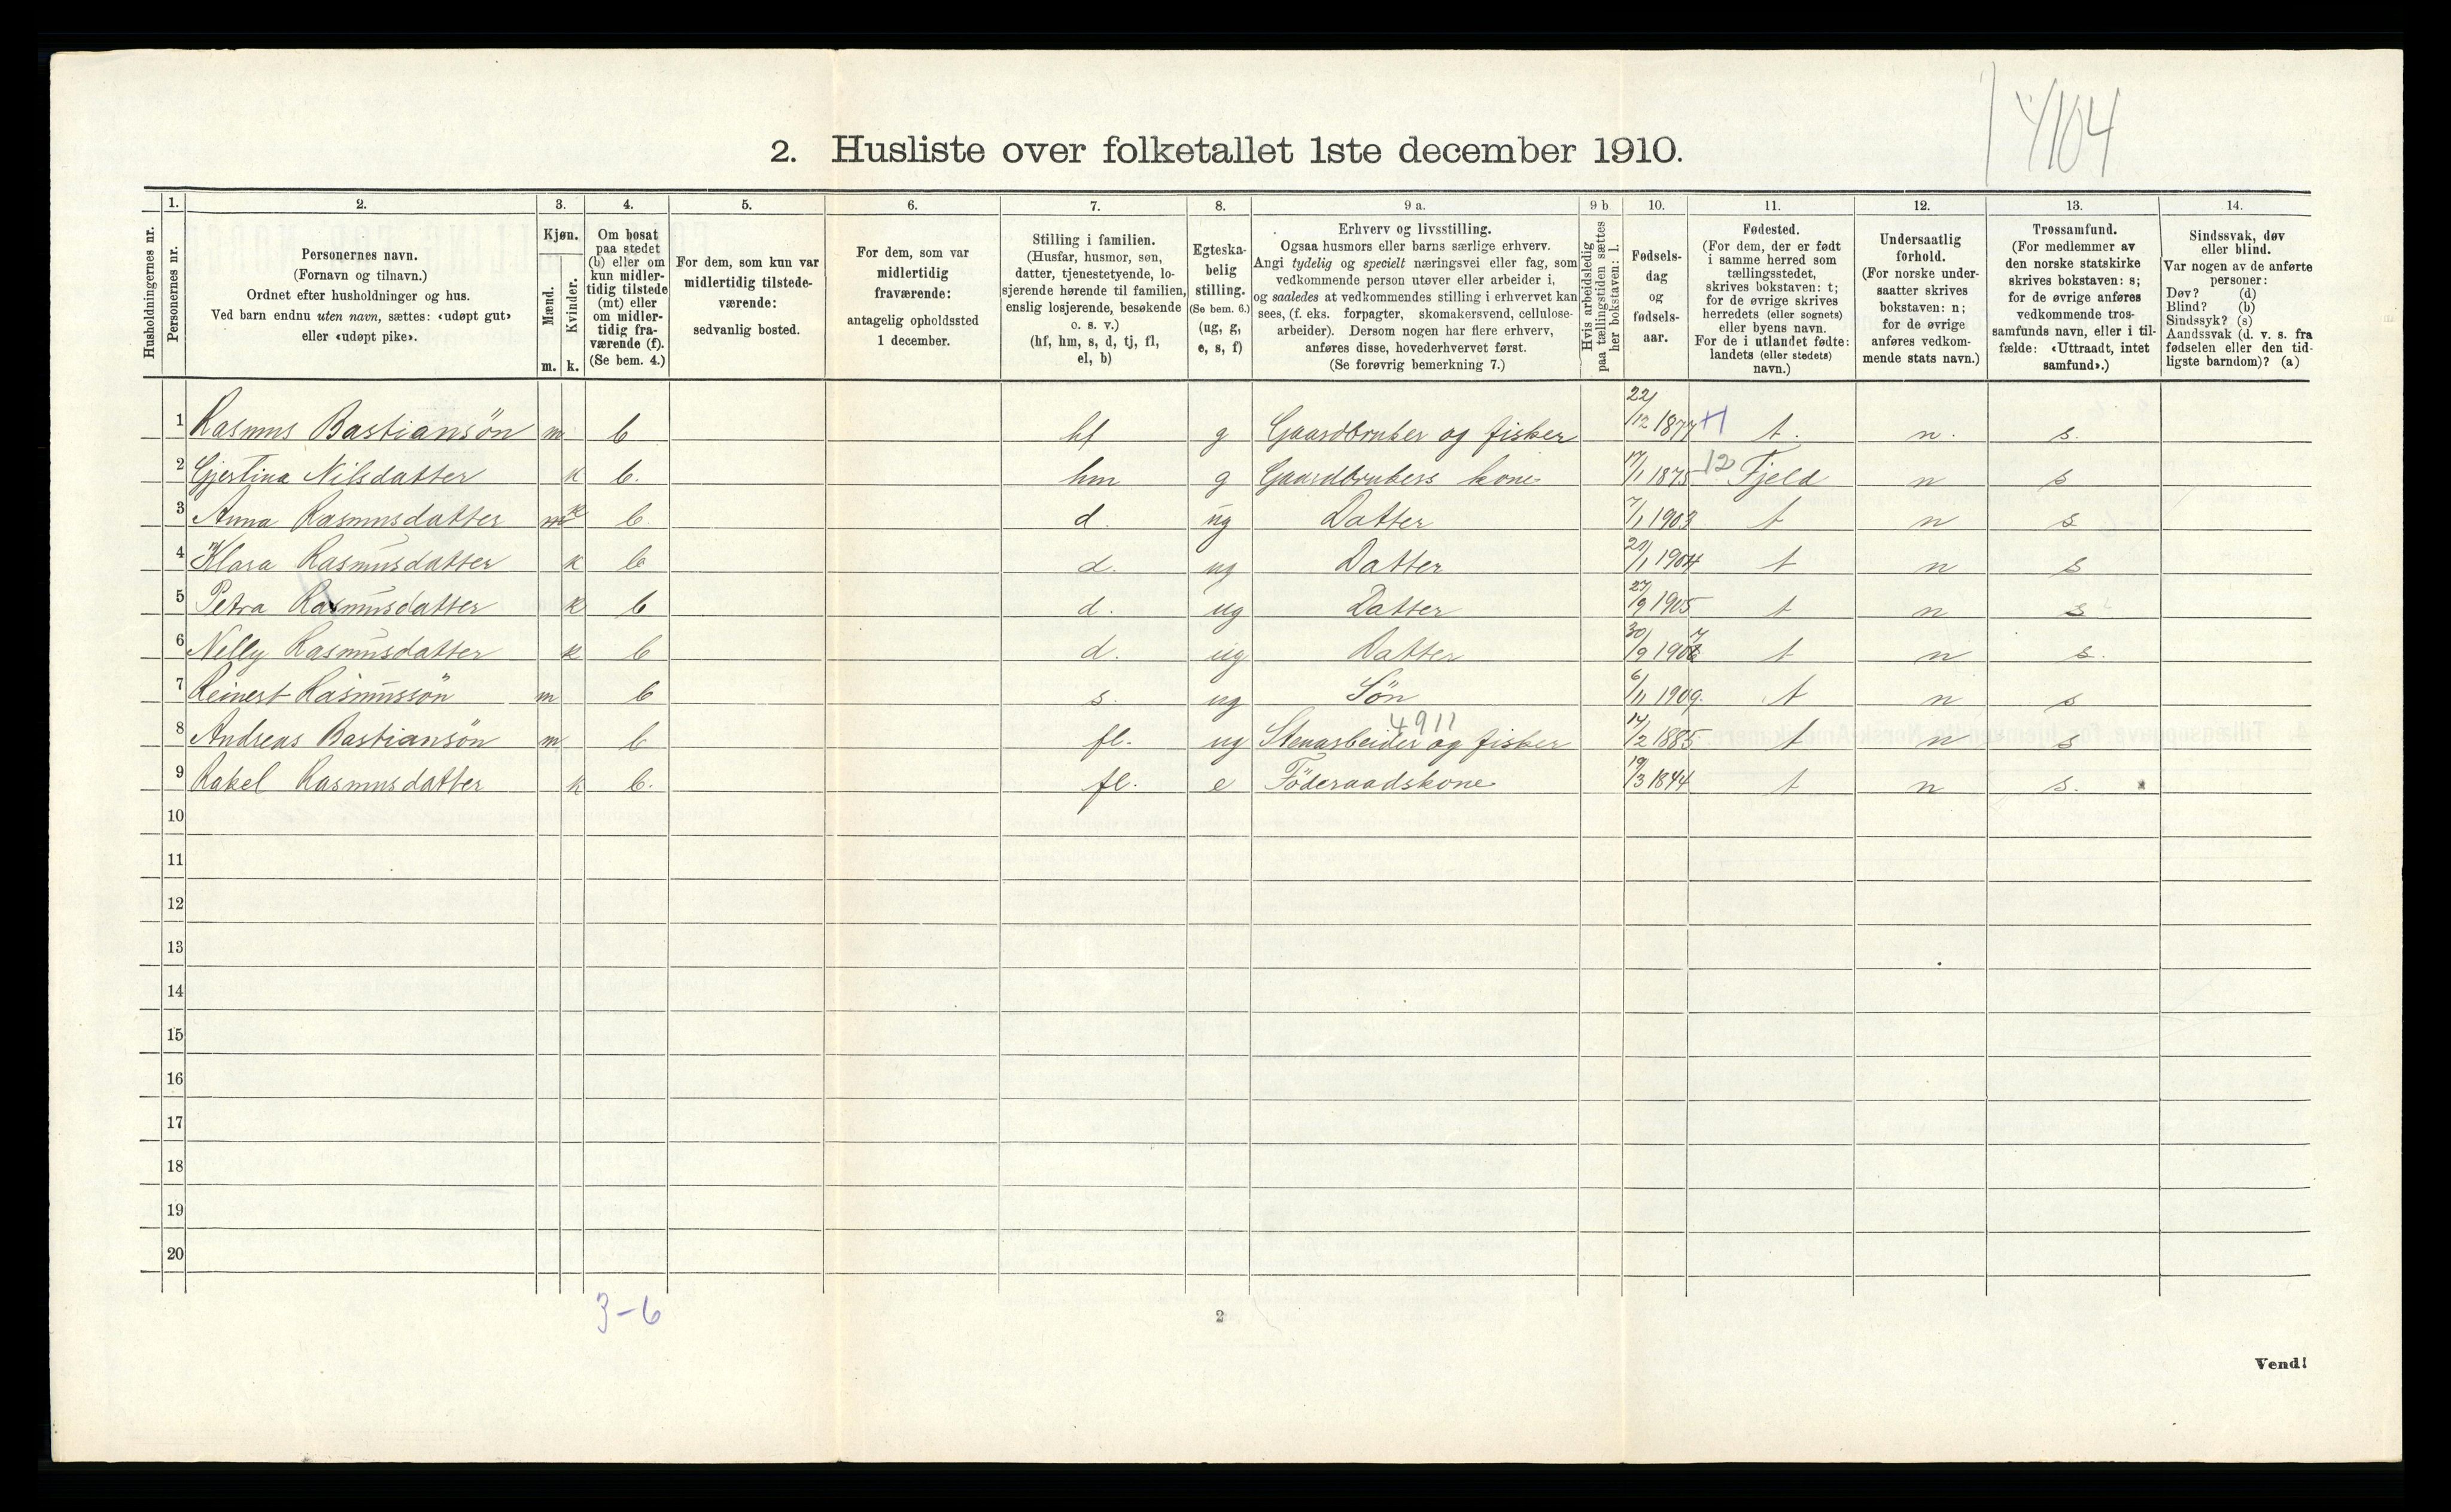 4/104
2. Husliste over folketallet 1ste december 1910.
Husholdningernes nr.
1.
Personernes nr.
2.
Personernes navn.
(Fornavn og tilnavn.)
Ordnet efter husholdninger og hus.
Ved barn endnu uten navn, sættes: «udøpt gut»
eller «udøpt pike».
3.
Kjøn.
Mænd.
Kvinder.
m. k.
4.
Om bosat
paa stedet
(b) eller om
kun midler-
tidig tilstede
(mt) eller
om midler-
tidig fra-
værende (f).
(Se bem. 4.)
5.
For dem, som kun var
midlertidig tilstede-
værende:
sedvanlig bosted.
6.
For dem, som var
midlertidig
fraværende:
antagelig opholdssted
1 december.
7.
Stilling i familien.
(Husfar, husmor, søn,
datter, tjenestetyende, lo-
sjerende hørende til familien,
enslig losjerende, besøkende
o. s. v.)
(hf, hm, s, d, tj, fl,
el, b)
8.
Egteska-
belig
stilling.
(Se bem. 6.)
(ug, g,
e, s, f)
9 a.
Erhverv og livsstilling.
Ogsaa husmors eller barns særlige erhverv.
Angi tydelig og specielt næringsvei eller fag, som
vedkommende person utøver eller arbeider i,
og saaledes at vedkommendes stilling i erhvervet kan
sees, (f. eks. forpagter, skomakersvend, cellulose-
arbeider). Dersom nogen har flere erhverv,
anføres disse, hovederhvervet først.
(Se forøvrig bemerkning 7.)
9 b.
Hvis arbeidsledig
paa tællingstiden sættes
her bokstaven: l.
10.
Fødsels-
dag
og
fødsels-
aar.
11.
Fødested.
(For dem, der er født
i samme herred som
tællingsstedet,
skrives bokstaven: t;
for de øvrige skrives
herredets (eller sognets)
eller byens navn.
For de i utlandet fødte:
landets (eller stedets)
navn.)
12.
Undersaatlig
forhold.
(For norske under-
saatter skrives
bokstaven: n;
for de øvrige
anføres vedkom-
mende stats navn.)
13.
Trossamfund.
(For medlemmer av
den norske statskirke
skrives bokstaven: s;
for de øvrige anføres
vedkommende tros-
samfunds navn, eller i til-
fælde: «Uttraadt, intet
samfund».)
14.
Sindssvak, døv
eller blind.
Var nogen av de anførte
personer:
Døv? (d)
Blind? (b)
Sindssyk? (s)
Aandssvak (d. v. s. fra
fødselen eller den tid-
ligste barndom)? (a)
1 Rasmus Bastiansön m b hf g Gaardbruker og fisker 22/12 1877 t. n. s.
2 Gjertina Nilsdatter k b. hm g Gaardbrukers kone 17/1 1875 12 Fjeld n s
3 Anna Rasmusdatter m k b. d. ug Datter 7/1 1903 t n s
4 Klara Rasmusdatter k b d. ug Datter 20/1 1904 t n s
5 Petra Rasmusdatter k b d. ug Datter 27/9 1905 t n s
6 Nelly Rasmusdatter k b d. ug Datter 30/9 1907 t n s.
7 Reinert Rasmussön m b s. ug Sön 6/11 1909. t n s
4911
8 Andreas Bastiansön m b fl. ug Stenarbeider og fisker 14/2 1885 t n s
9 Rakel Rasmusdatter k b. fl. e Föderaadskone 19/3 1844 t n s.
10
11
12
13
14
15
16
17
18
19
20
3-6
2
Vend!